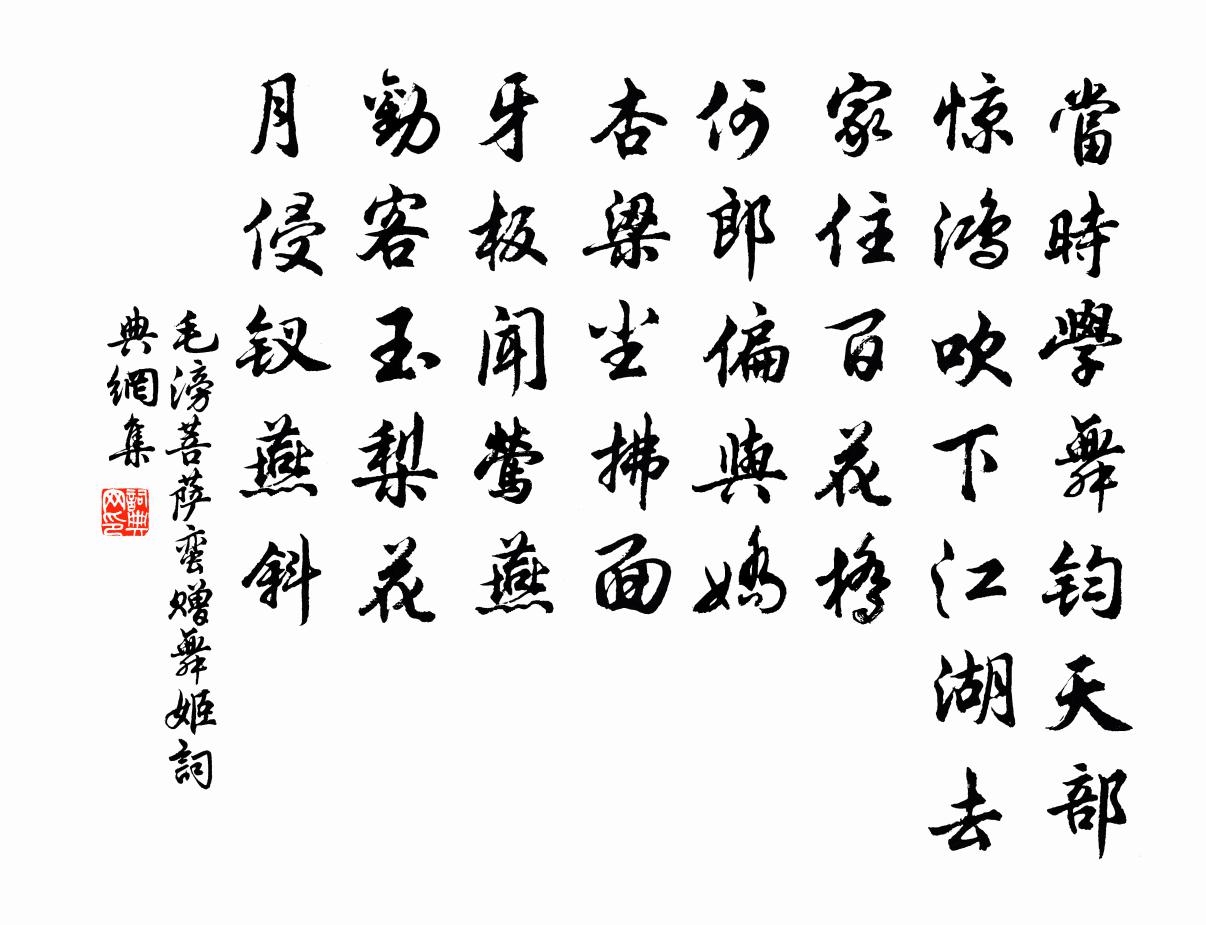 當時學舞鈞天部
惊鴻吹下江湖去
家住百花橋
何郎偏與嬌
杏梁尘拂面
牙板聞鶯燕
勸客玉梨花
月侵釵燕斜
毛滂菩萨蛮赠舞姬詞
典網集
詞典
网印